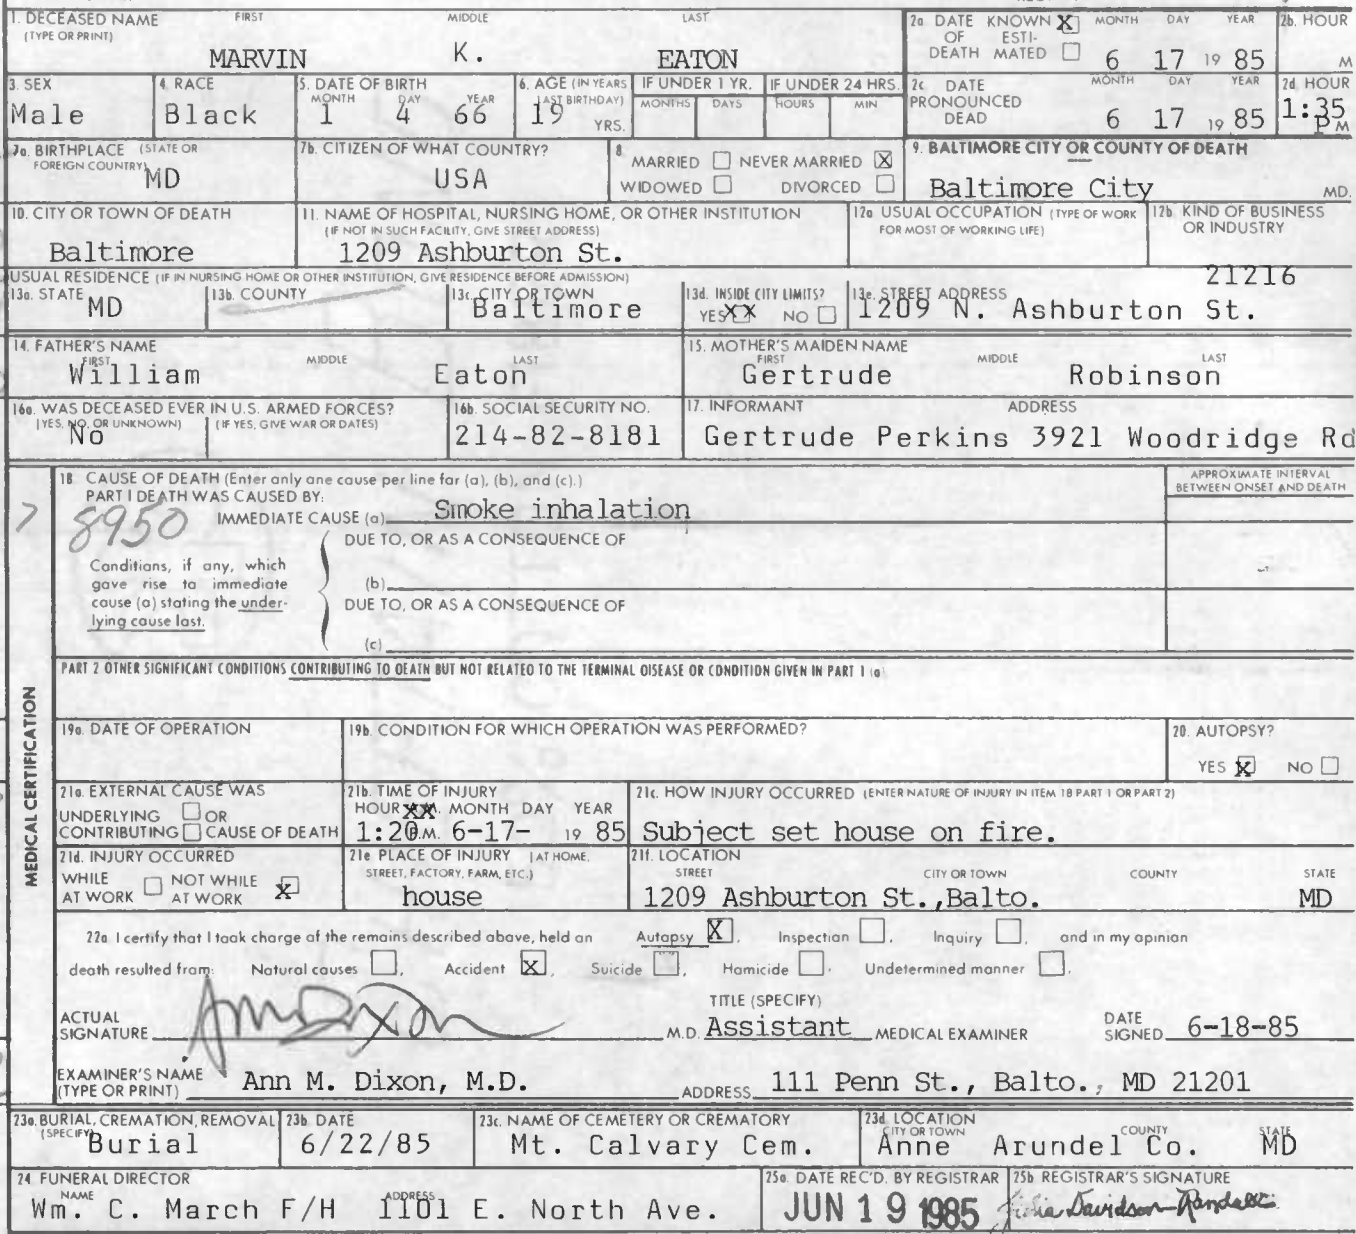 1. DECEASED NAME FIRST MIDDLE LAST
(TYPE OR PRINT)
MARVIN K. EATON
2a. DATE OF DEATH KNOWN X ESTIMATED MONTH DAY YEAR
6 17 19 85
2b. HOUR
M
3. SEX
Male
4. RACE
Black
5. DATE OF BIRTH
MONTH DAY YEAR
1 4 66
6. AGE (IN YEARS LAST BIRTHDAY)
19 YRS.
IF UNDER 1 YR.
MONTHS DAYS
IF UNDER 24 HRS.
HOURS MIN
2c. DATE PRONOUNCED DEAD MONTH DAY YEAR
6 17 19 85
2d. HOUR
1:35
P M
7a. BIRTHPLACE (STATE OR FOREIGN COUNTRY)
MD
7b. CITIZEN OF WHAT COUNTRY?
USA
8.
MARRIED NEVER MARRIED X
WIDOWED DIVORCED
9. BALTIMORE CITY OR COUNTY OF DEATH
Baltimore City MD.
10. CITY OR TOWN OF DEATH
Baltimore
11. NAME OF HOSPITAL, NURSING HOME, OR OTHER INSTITUTION
(IF NOT IN SUCH FACILITY, GIVE STREET ADDRESS)
1209 Ashburton St.
12a USUAL OCCUPATION (TYPE OF WORK FOR MOST OF WORKING LIFE)
12b KIND OF BUSINESS OR INDUSTRY
USUAL RESIDENCE (IF IN NURSING HOME OR OTHER INSTITUTION, GIVE RESIDENCE BEFORE ADMISSION)
21216
13a. STATE
MD
13b. COUNTY
13c. CITY OR TOWN
Baltimore
13d. INSIDE CITY LIMITS?
YES XX NO
13e. STREET ADDRESS
1209 N. Ashburton St.
14. FATHER'S NAME
FIRST MIDDLE LAST
William Eaton
15. MOTHER'S MAIDEN NAME
FIRST MIDDLE LAST
Gertrude Robinson
16a. WAS DECEASED EVER IN U.S. ARMED FORCES?
(YES, NO, OR UNKNOWN) (IF YES, GIVE WAR OR DATES)
No
16b. SOCIAL SECURITY NO.
214-82-8181
17. INFORMANT ADDRESS
Gertrude Perkins 3921 Woodridge Rd
MEDICAL CERTIFICATION
18 CAUSE OF DEATH (Enter only one cause per line for (a), (b), and (c).)
APPROXIMATE INTERVAL BETWEEN ONSET AND DEATH
PART I DEATH WAS CAUSED BY:
8950
IMMEDIATE CAUSE (a) Smoke inhalation
DUE TO, OR AS A CONSEQUENCE OF
Conditions, if any, which
gave rise to immediate
cause (a) stating the under-
lying cause last.
(b)
DUE TO, OR AS A CONSEQUENCE OF
(c)
PART 2 OTHER SIGNIFICANT CONDITIONS CONTRIBUTING TO DEATH BUT NOT RELATED TO THE TERMINAL DISEASE OR CONDITION GIVEN IN PART 1 (a)
19a. DATE OF OPERATION
19b. CONDITION FOR WHICH OPERATION WAS PERFORMED?
20. AUTOPSY?
YES X NO
21a. EXTERNAL CAUSE WAS
UNDERLYING OR
CONTRIBUTING CAUSE OF DEATH
21b. TIME OF INJURY
HOUR XX. MONTH DAY YEAR
1:20 P.M. 6-17- 19 85
21c. HOW INJURY OCCURRED (ENTER NATURE OF INJURY IN ITEM 18 PART 1 OR PART 2)
Subject set house on fire.
21d. INJURY OCCURRED
WHILE AT WORK NOT WHILE AT WORK X
21e PLACE OF INJURY (AT HOME, STREET, FACTORY, FARM, ETC.)
house
21f. LOCATION
STREET CITY OR TOWN COUNTY STATE
1209 Ashburton St.,Balto. MD
22a I certify that I took charge of the remains described above, held an Autopsy X, Inspection , Inquiry , and in my opinion
death resulted from: Natural causes , Accident X, Suicide , Homicide . Undetermined manner .
ACTUAL SIGNATURE Ann Dixon M.D.
TITLE (SPECIFY)
Assistant MEDICAL EXAMINER
DATE SIGNED 6-18-85
EXAMINER'S NAME (TYPE OR PRINT) Ann M. Dixon, M.D.
ADDRESS 111 Penn St., Balto., MD 21201
23a. BURIAL, CREMATION, REMOVAL (SPECIFY)
Burial
23b. DATE
6/22/85
23c. NAME OF CEMETERY OR CREMATORY
Mt. Calvary Cem.
23d. LOCATION
CITY OR TOWN COUNTY STATE
Anne Arundel Co. MD
24 FUNERAL DIRECTOR
NAME ADDRESS
Wm. C. March F/H 1101 E. North Ave.
25a. DATE REC'D. BY REGISTRAR
JUN 19 1985
25b. REGISTRAR'S SIGNATURE
Davidson-Randall